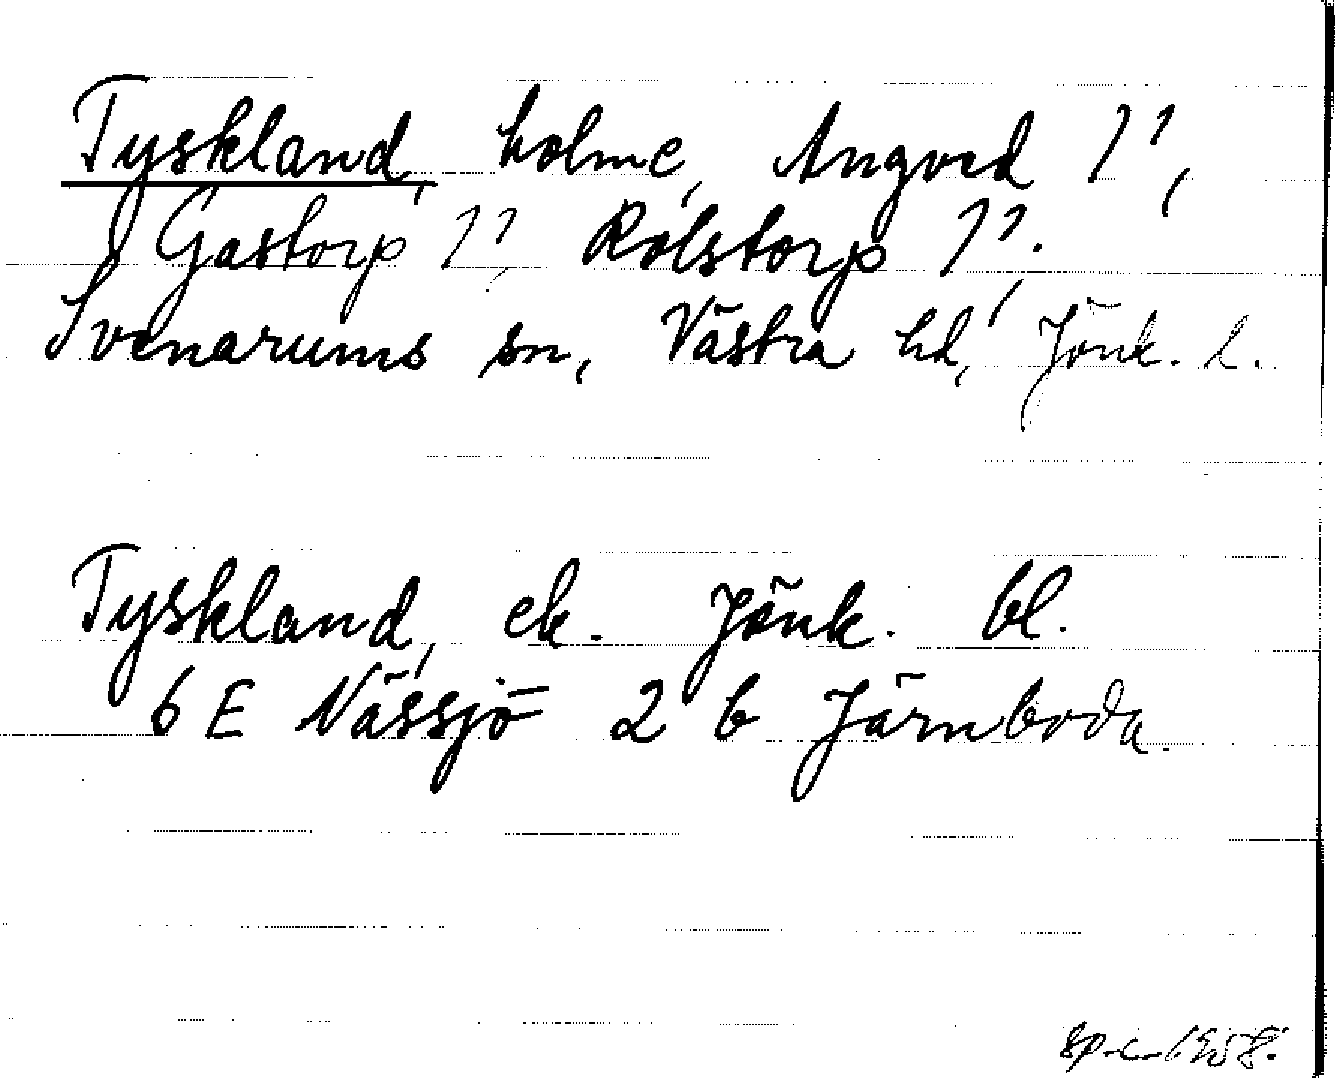 Tyskland, holme, Angved 1¹,
Gastorp 1¹, Rolstorp 1¹.
Svenarums sn, Västra hd, Jönk. l.
Tyskland, ek. Jönk. bl.
6 E Nässjö 2 b Järnboda.
1958.